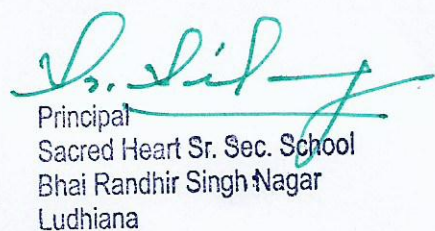 Principal
Sacred Heart Sr. Sec. School
Bhai Randhir Singh Nagar
Ludhiana